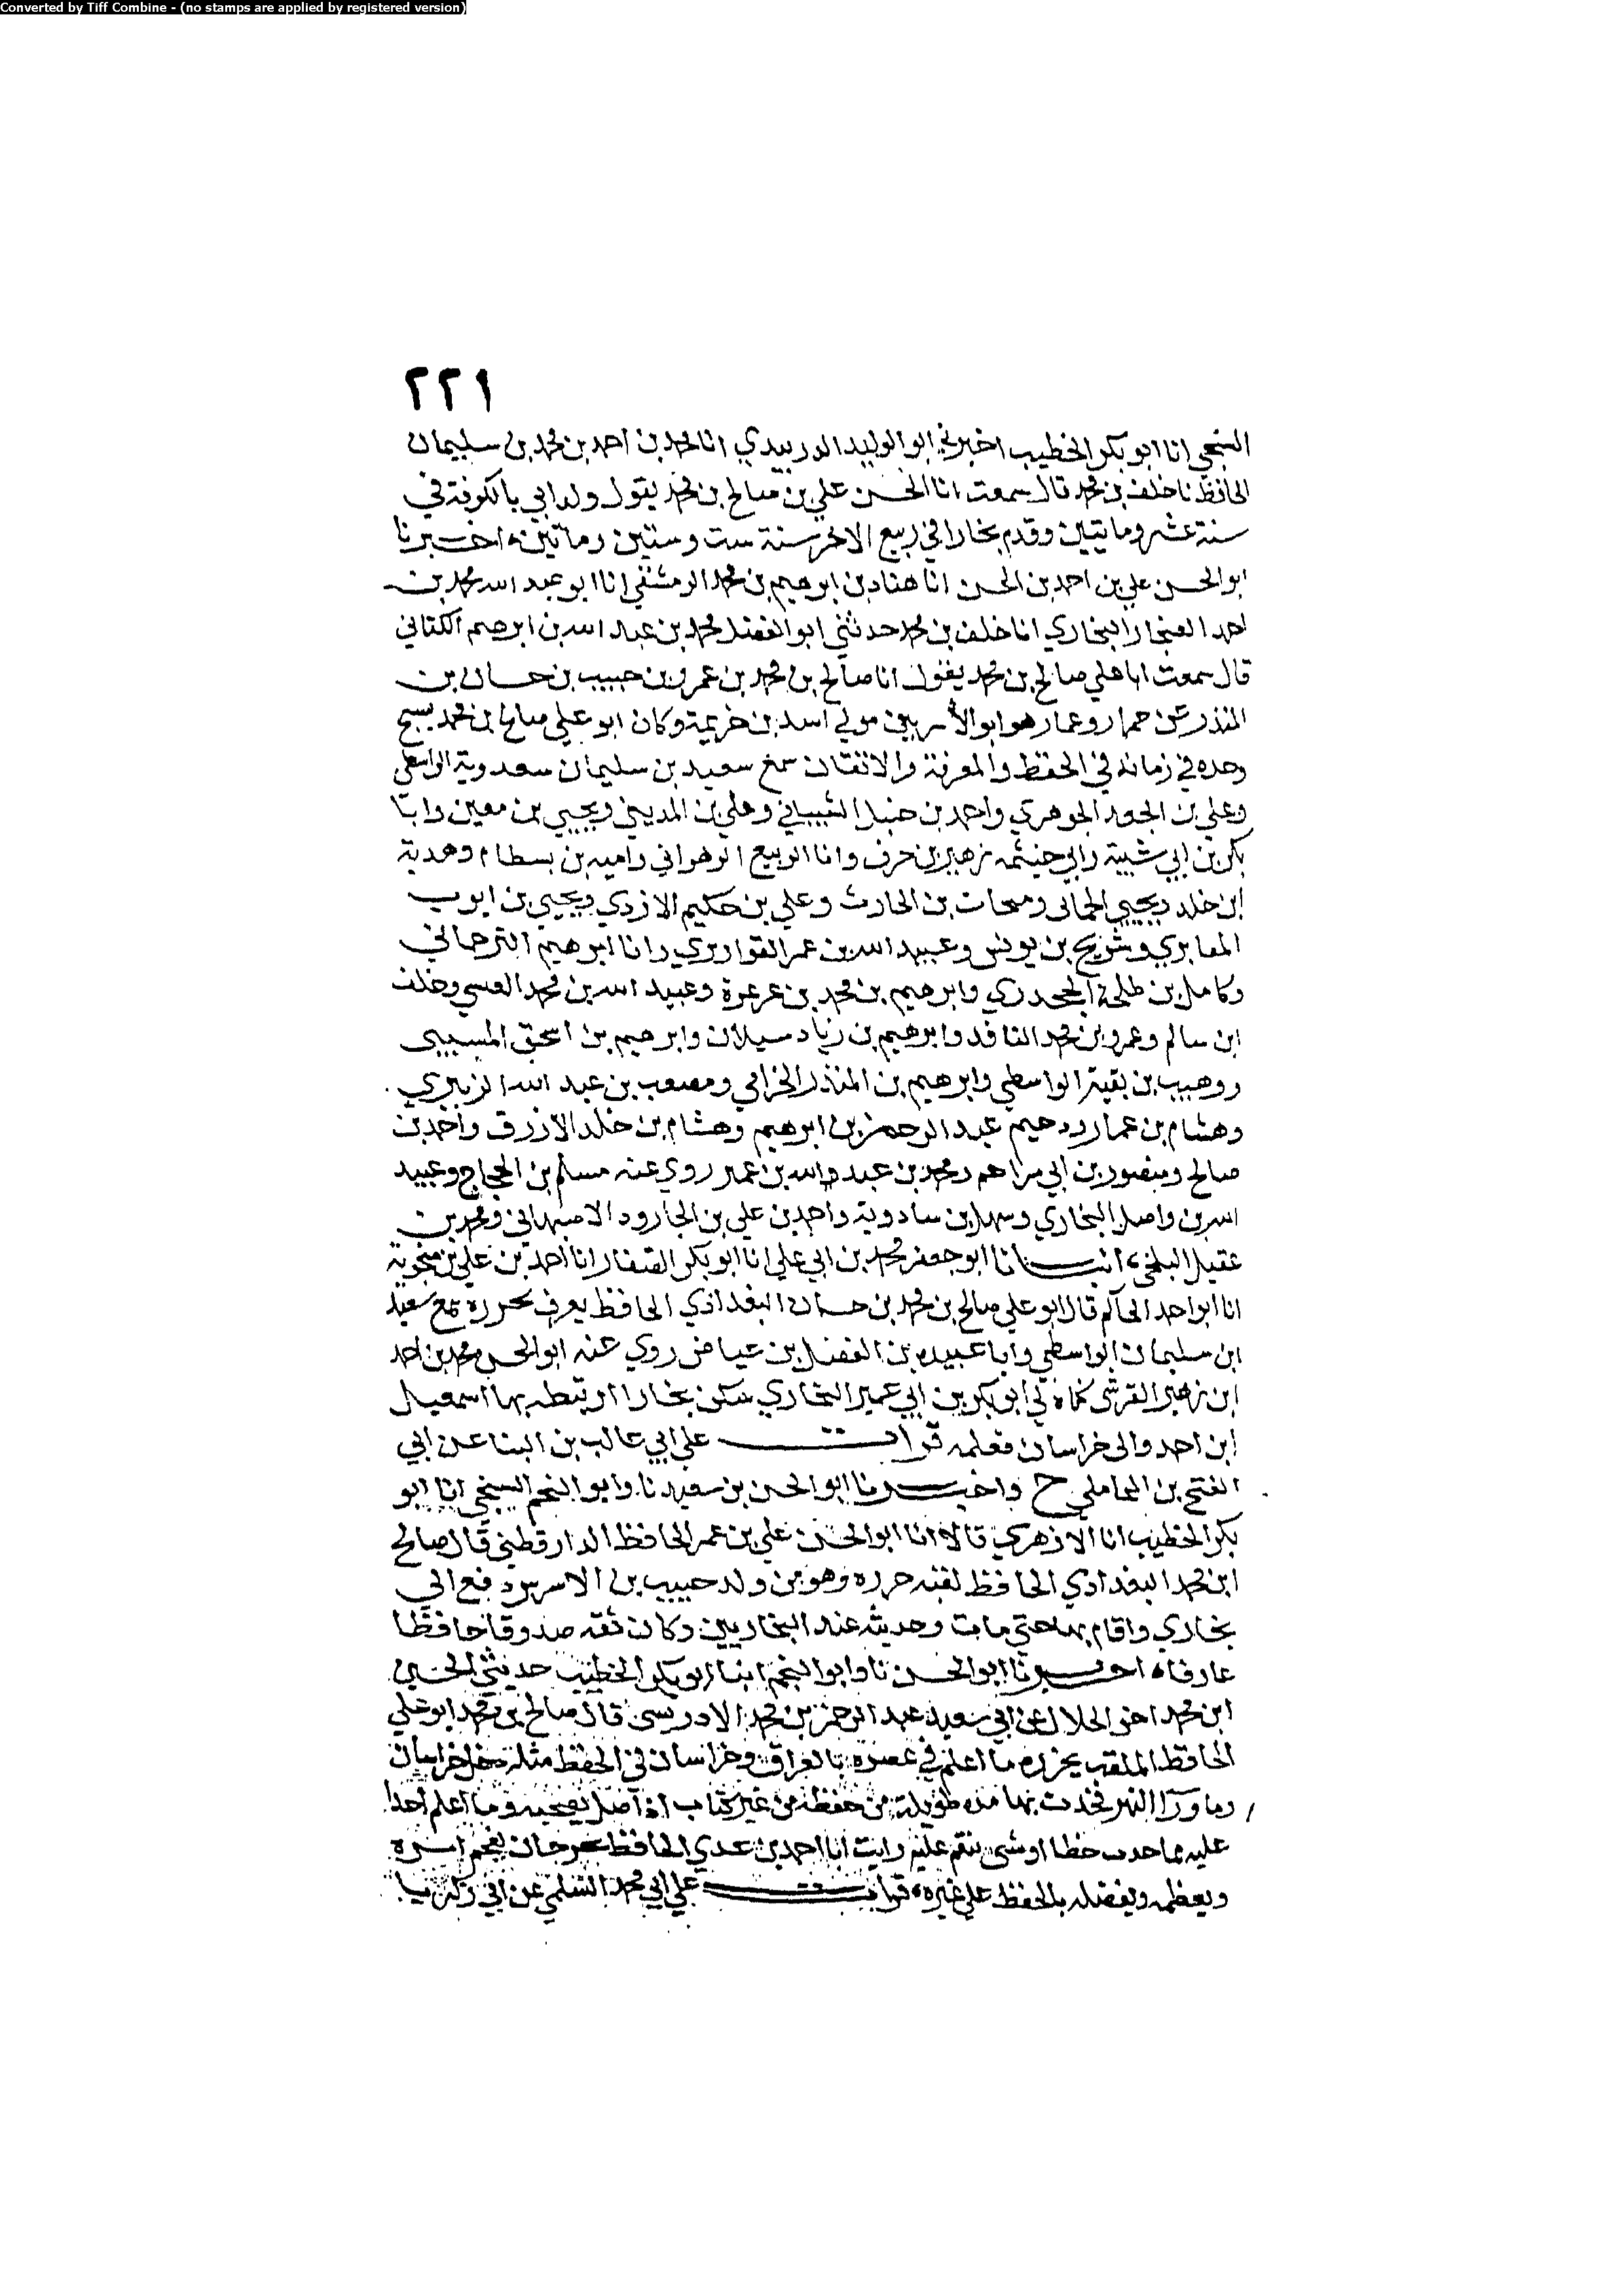 Converted by Tiff Combine - (no stamps are applied by registered version)
٢٢١
السنجي انا ابو بكر الخطيب اخبرني ابو الوليد الدربندي انا محمد بن احمد بن محمد بن سليمان
الحافظ نا خلف بن محمد قال سمعت ابا الحسن علي بن صالح بن محمد يقول ولد ابي بالكوفة في
سنة عشر ومايتين وقدم بخارا في ربيع الاخر سنة ست وستين وماتين اخبرنا
ابو الحسن علي بن احمد بن الحسن انا هناد بن ابرهيم بن محمد انا ابو عبد الله محمد بن
احمد الغنجار البخاري انا خلف بن محمد حدثني ابو الفضل محمد بن عبد الله بن ابرهيم الكتاني
قال سمعت ابا علي صالح بن محمد يقول انا صالح بن محمد بن عمرو بن حبيب بن حسان بن
المنذر بن عمار وعمار هو ابو الأشرس مولي اسد بن خزيمة وكان ابو علي صالح بن محمد نسيج
وحده في زمانه في الحفظ والمعرفة والاتقان سمع سعيد بن سليمان سعدوية الواسطي
وعلي بن الجعد الجوهري واحمد بن حنبل الشيباني وعلي بن المديني ويحيي بن معين وابا
بكر بن ابي شيبة وابي خيثمه زهير بن حرب وابا الربيع الزهراني واميه بن بسطام وهدبة
ابن خلد ويحيي الحماني ومنجاب بن الحارث وعلي بن حكيم الازدي ويحيي بن ايوب
المقابري وشريح بن يونس وعبيد الله بن عمر القواريري وابا ابرهيم الترجماني
وكامل بن طلحة الجحدري وابرهيم بن محمد بن عرعرة وعبيد الله بن محمد العيسي وخلف
ابن سالم وعمرو بن محمد الناقد وابرهيم بن زياد سبلان وابرهيم بن اسحق المسيبي
ووهيب بن بقية الواسطي وابرهيم بن المنذر الحزامي ومصعب بن عبد الله الزبيري
وهشام بن عمار ودحيم عبد الرحمن بن ابرهيم وهشام بن خلد الازرق واحمد بن
صالح ومنصور بن ابي مزاحم ومحمد بن عبد الله بن نمير روي عنه مسلم بن الحجاج وعبيد
الله بن واصل البخاري وسهل بن سادوية واحمد بن علي بن الجارود الاصبهاني ومحمد بن
عقيل البلخي انبانا ابو جعفر محمد بن ابي علي انا ابو بكر الصفار انا احمد بن علي بن منجوية
انا ابو احمد الحاكم قال ابو علي صالح بن محمد بن حسان البغداذي الحافظ يعرف بجزره سمع سعيد
ابن سليمان الواسطي وابا عبيده بن الفضل بن عياض روي عنه ابو الحسن محمد بن احمد
ابن زهير القرشي كناه لي ابو بكر بن ابي عمير البخاري سكن بخارا ارتبطه بها اسمعيل
ابن احمد والى خراسان فعلمه قرات علي ابي غالب بن البنا عن ابي
الفتح بن المحاملي ح واخبرنا ابو الحسن بن سعيد نا وابو النجم السنجي انا ابو
بكر الخطيب انا الازهري قالا انا ابو الحسن علي بن عمر الحافظ الدارقطني قال صالح
ابن محمد البغدادي الحافظ لقبه جزره وهو من ولد حبيب بن الاشرس وقع الي
بخاري واقام بها حتي مات وحديثه عند البخاريين وكان ثقه صدوقا حافظا
عارفا اخبرنا ابو الحسن نا وابو النجم ابنا ابو بكر الخطيب حدثني الحسين
ابن محمد اخو الخلال عن ابي سعيد عبد الرحمن بن محمد الادريسي قال صالح بن محمد ابو علي
الحافظ الملقب بجزره ما اعلم في عصره بالعراق وخراسان في الحفظ مثله دخل خراسان
وما ورآ النهر فحدث بها مده طويلة من حفظه من غير كتاب اذ اصل يصحبه وما اعلم احدا
عليه مما حدث خطا او شي ينقم عليه رايت ابا احمد بن عدي الحافظ بجرجان يفخم امره
ويعظمه ويفضله بالحفظ علي غيره قرات علي ابي محمد السلمي عن ابي زكريا